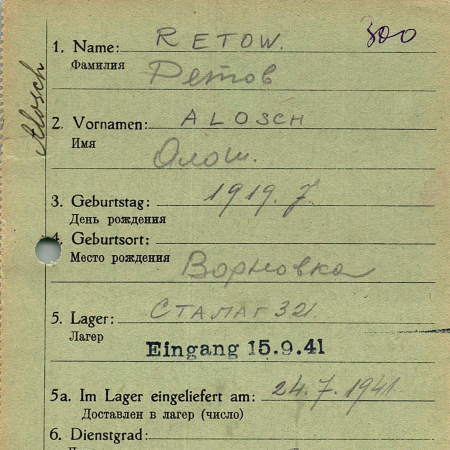 300
1. Name: RETOW.
Фамилия Ретов
Alosch
2. Vornamen: ALOSCH
Имя Олош.
3. Geburtstag: 1919. 7.
День рождения
4. Geburtsort:
Место рождения Ворновка
5. Lager: СТАЛАГ 321.
Лагер
Eingang 15.9.41
5a. Im Lager eingeliefert am: 24.7.1941
Доставлен в лагер (число)
6. Dienstgrad: